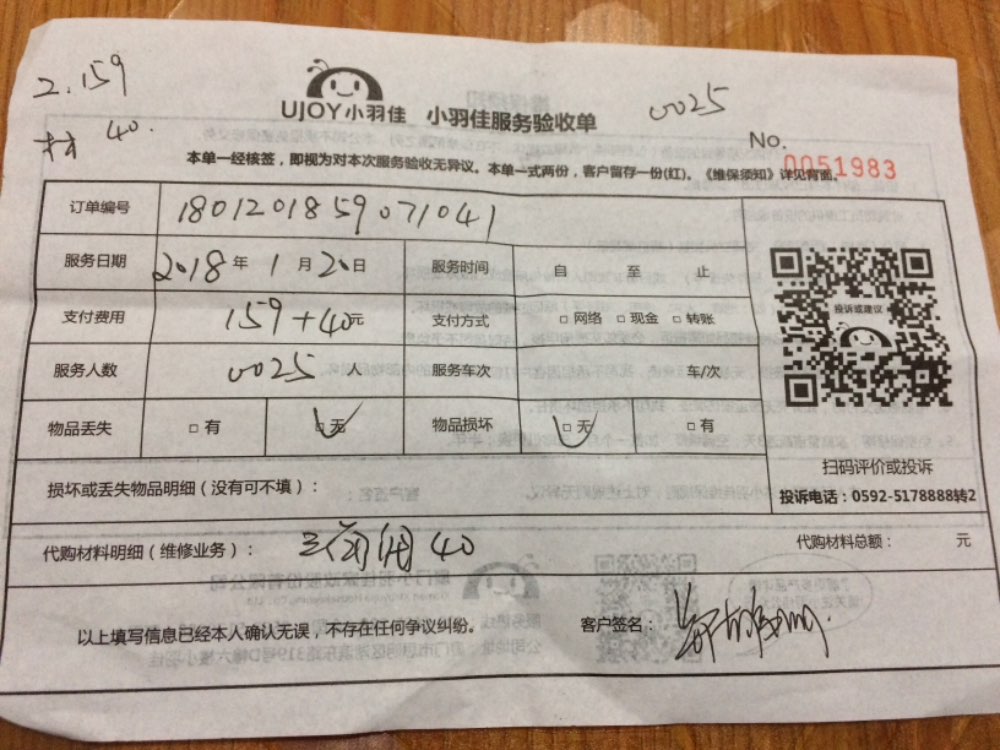 2.159
材 40.
UJOY小羽佳 小羽佳服务验收单
0025
No.0051983
本单一经核签，即视为对本次服务验收无异议。本单一式两份，客户留存一份(红)。《维保须知》详见背面。
订单编号 1801201859071041
服务日期 2018年1月20日 服务时间 自 至 止
支付费用 159+40元 支付方式 □网络 □现金 □转账
服务人数 0025 人 服务车次 车/次
物品丢失 □有 □无 物品损坏 □无 □有
投诉或建议
扫码评价或投诉
投诉电话：0592-5178888转2
损坏或丢失物品明细（没有可不填）：
代购材料明细（维修业务）： 40 代购材料总额： 元
以上填写信息已经本人确认无误，不存在任何争议纠纷。 客户签名：